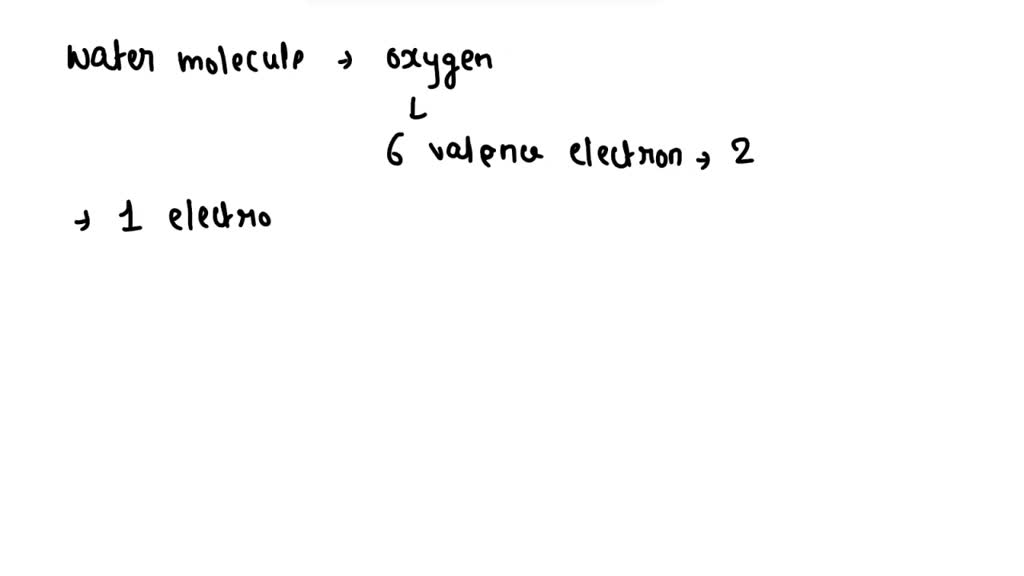 water molecule → oxygen
↳
6 valence electron → 2
→ 1 electro